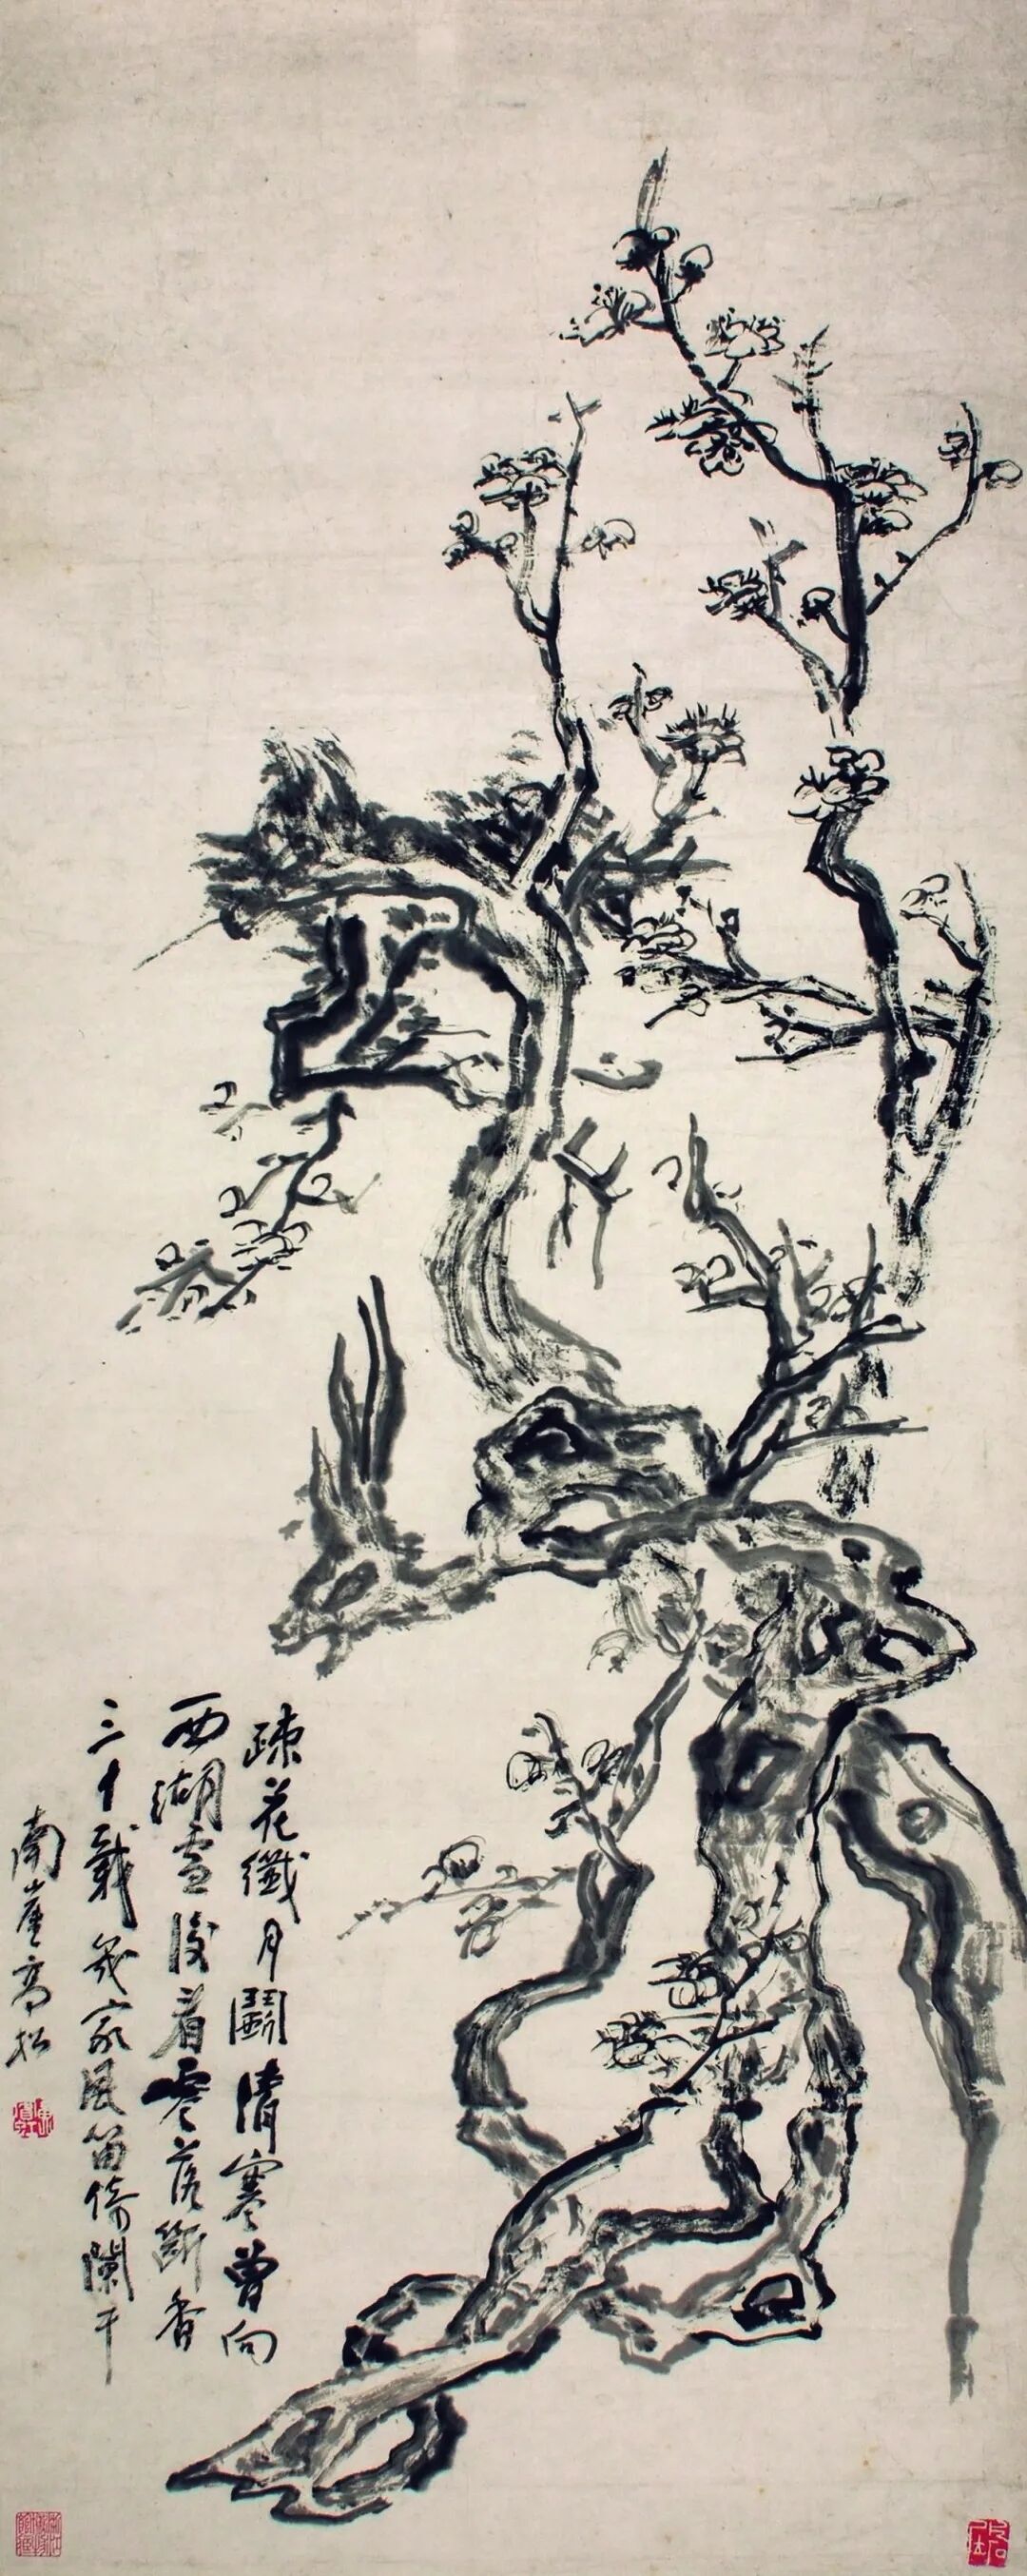 疎花纖月鬭清寒曾向
西湖雪後看零落斷香
三十載幾家風笛倚闌干
南崖高松